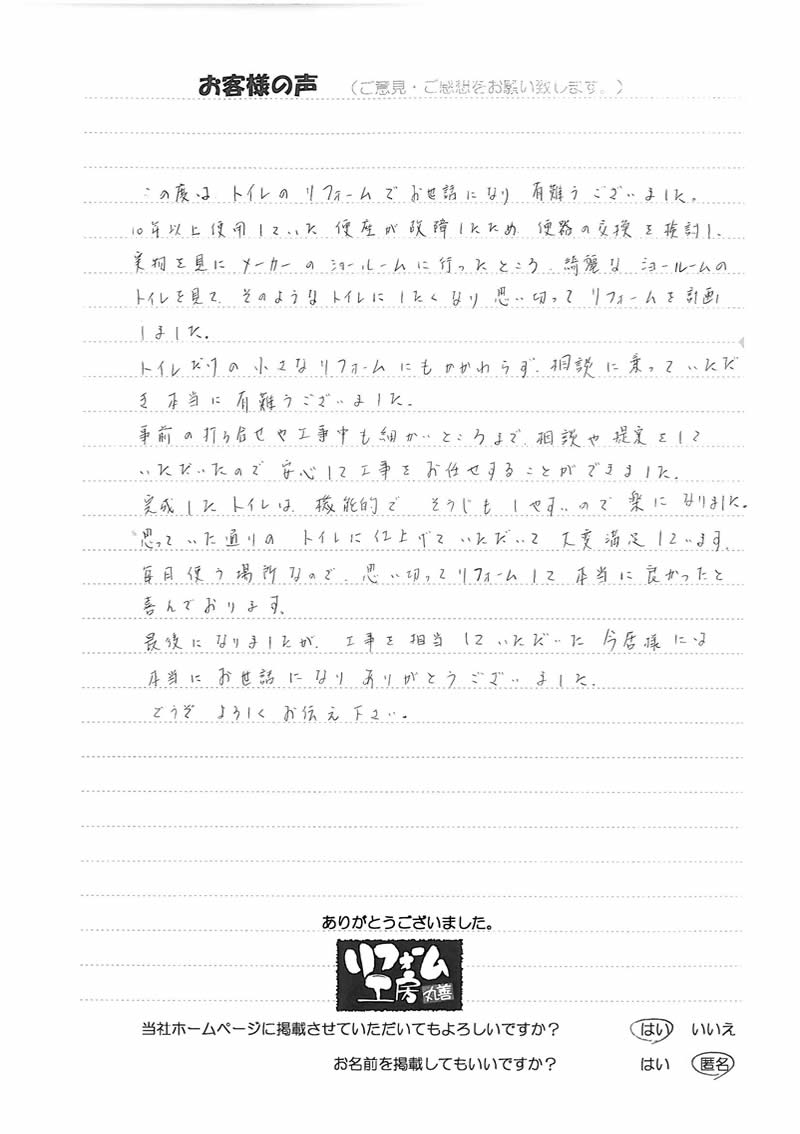 お客様の声 （ご意見・ご感想をお願い致します。）
この度は トイレのリフォームでお世話になり 有難うございました。
10年以上使用していた 便座が故障したため 便器の交換を検討し、
実物を見に メーカーのショールームに行ったところ、綺麗な ショールームの
トイレを見て、そのようなトイレにしたくなり 思い切って リフォームを計画
しました。
トイレだけの小さなリフォームにもかかわらず、相談に乗っていただ
き 本当に 有難うございました。
事前の打ち合せや工事中も細かいところまで、相談や提案をして
いただいたので 安心して工事をお任せすることができました。
完成したトイレは、機能的で そうじもしやすいので 楽になりました。
思っていた通りの トイレに仕上げていただいて 大変満足しています。
毎日使う場所なので、思い切ってリフォームして 本当に良かったと
喜んでおります。
最後になりましたが、工事を担当していただいた 今居様には
本当に お世話になり ありがとうございました。
どうぞ よろしく お伝え下さい。
ありがとうございました。
リフォーム
工房 丸善
当社ホームページに掲載させていただいてもよろしいですか？ はい いいえ
お名前を掲載してもいいですか？ はい 匿名